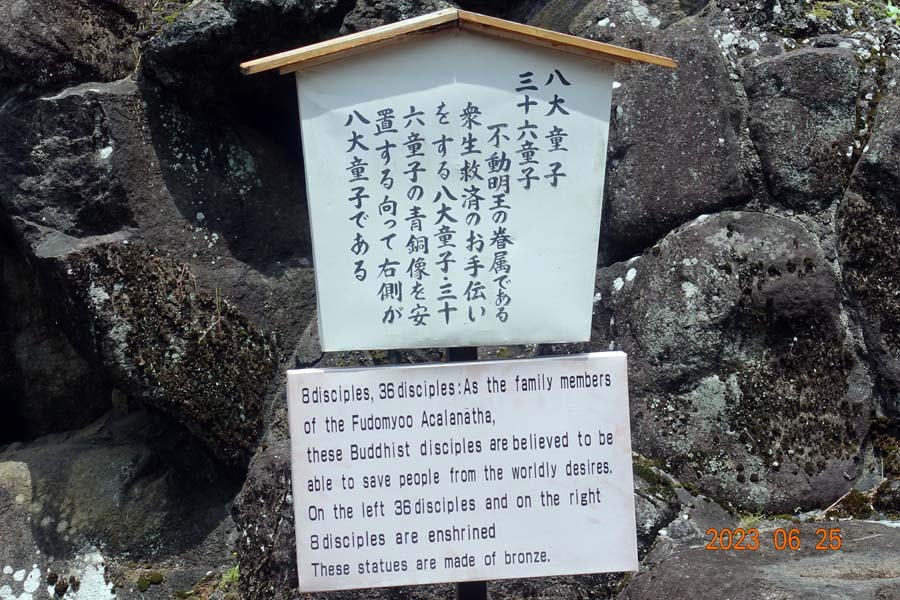 八大童子
三十六童子
不動明王の眷属である
衆生救済のお手伝い
をする八大童子・三十
六童子の青銅像を安
置する向って右側が
八大童子である
8disciples, 36disciples:As the family members
of the Fudomyoo Acalanātha,
these Buddhist disciples are believed to be
able to save people from the worldly desires.
On the left 36disciples and on the right
8disciples are enshrined
These statues are made of bronze.
2023 06 25